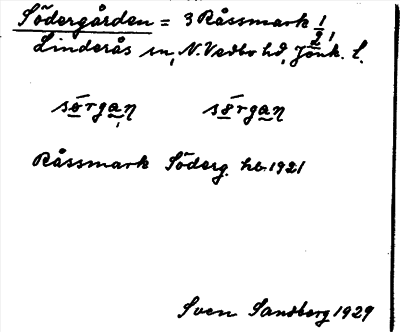 Södergården = 3 Råssmark 1/2,
Linderås sn, N. Vedbo hd, Jönk. l.
Råssmark Söderg. hb. 1921
Sven Sandberg 1929